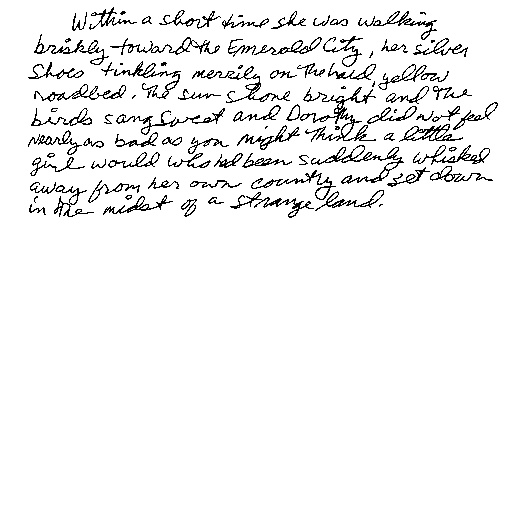 Within a short time she was walking
briskly toward the Emerald City, her silver
Shoes tinkling merrily on the hard, yellow
roadbed. The sun shone bright and the
birds sang sweet and Dorothy did not feel
nearly as bad as you might think a little
girl would who had been suddenly whisked
away from her own country and set down
in the midst of a strange land.